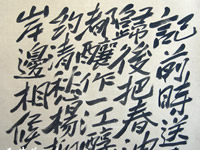 記前時送
歸後把春
都釃作一江醇
約清秋楊
岸邊相候